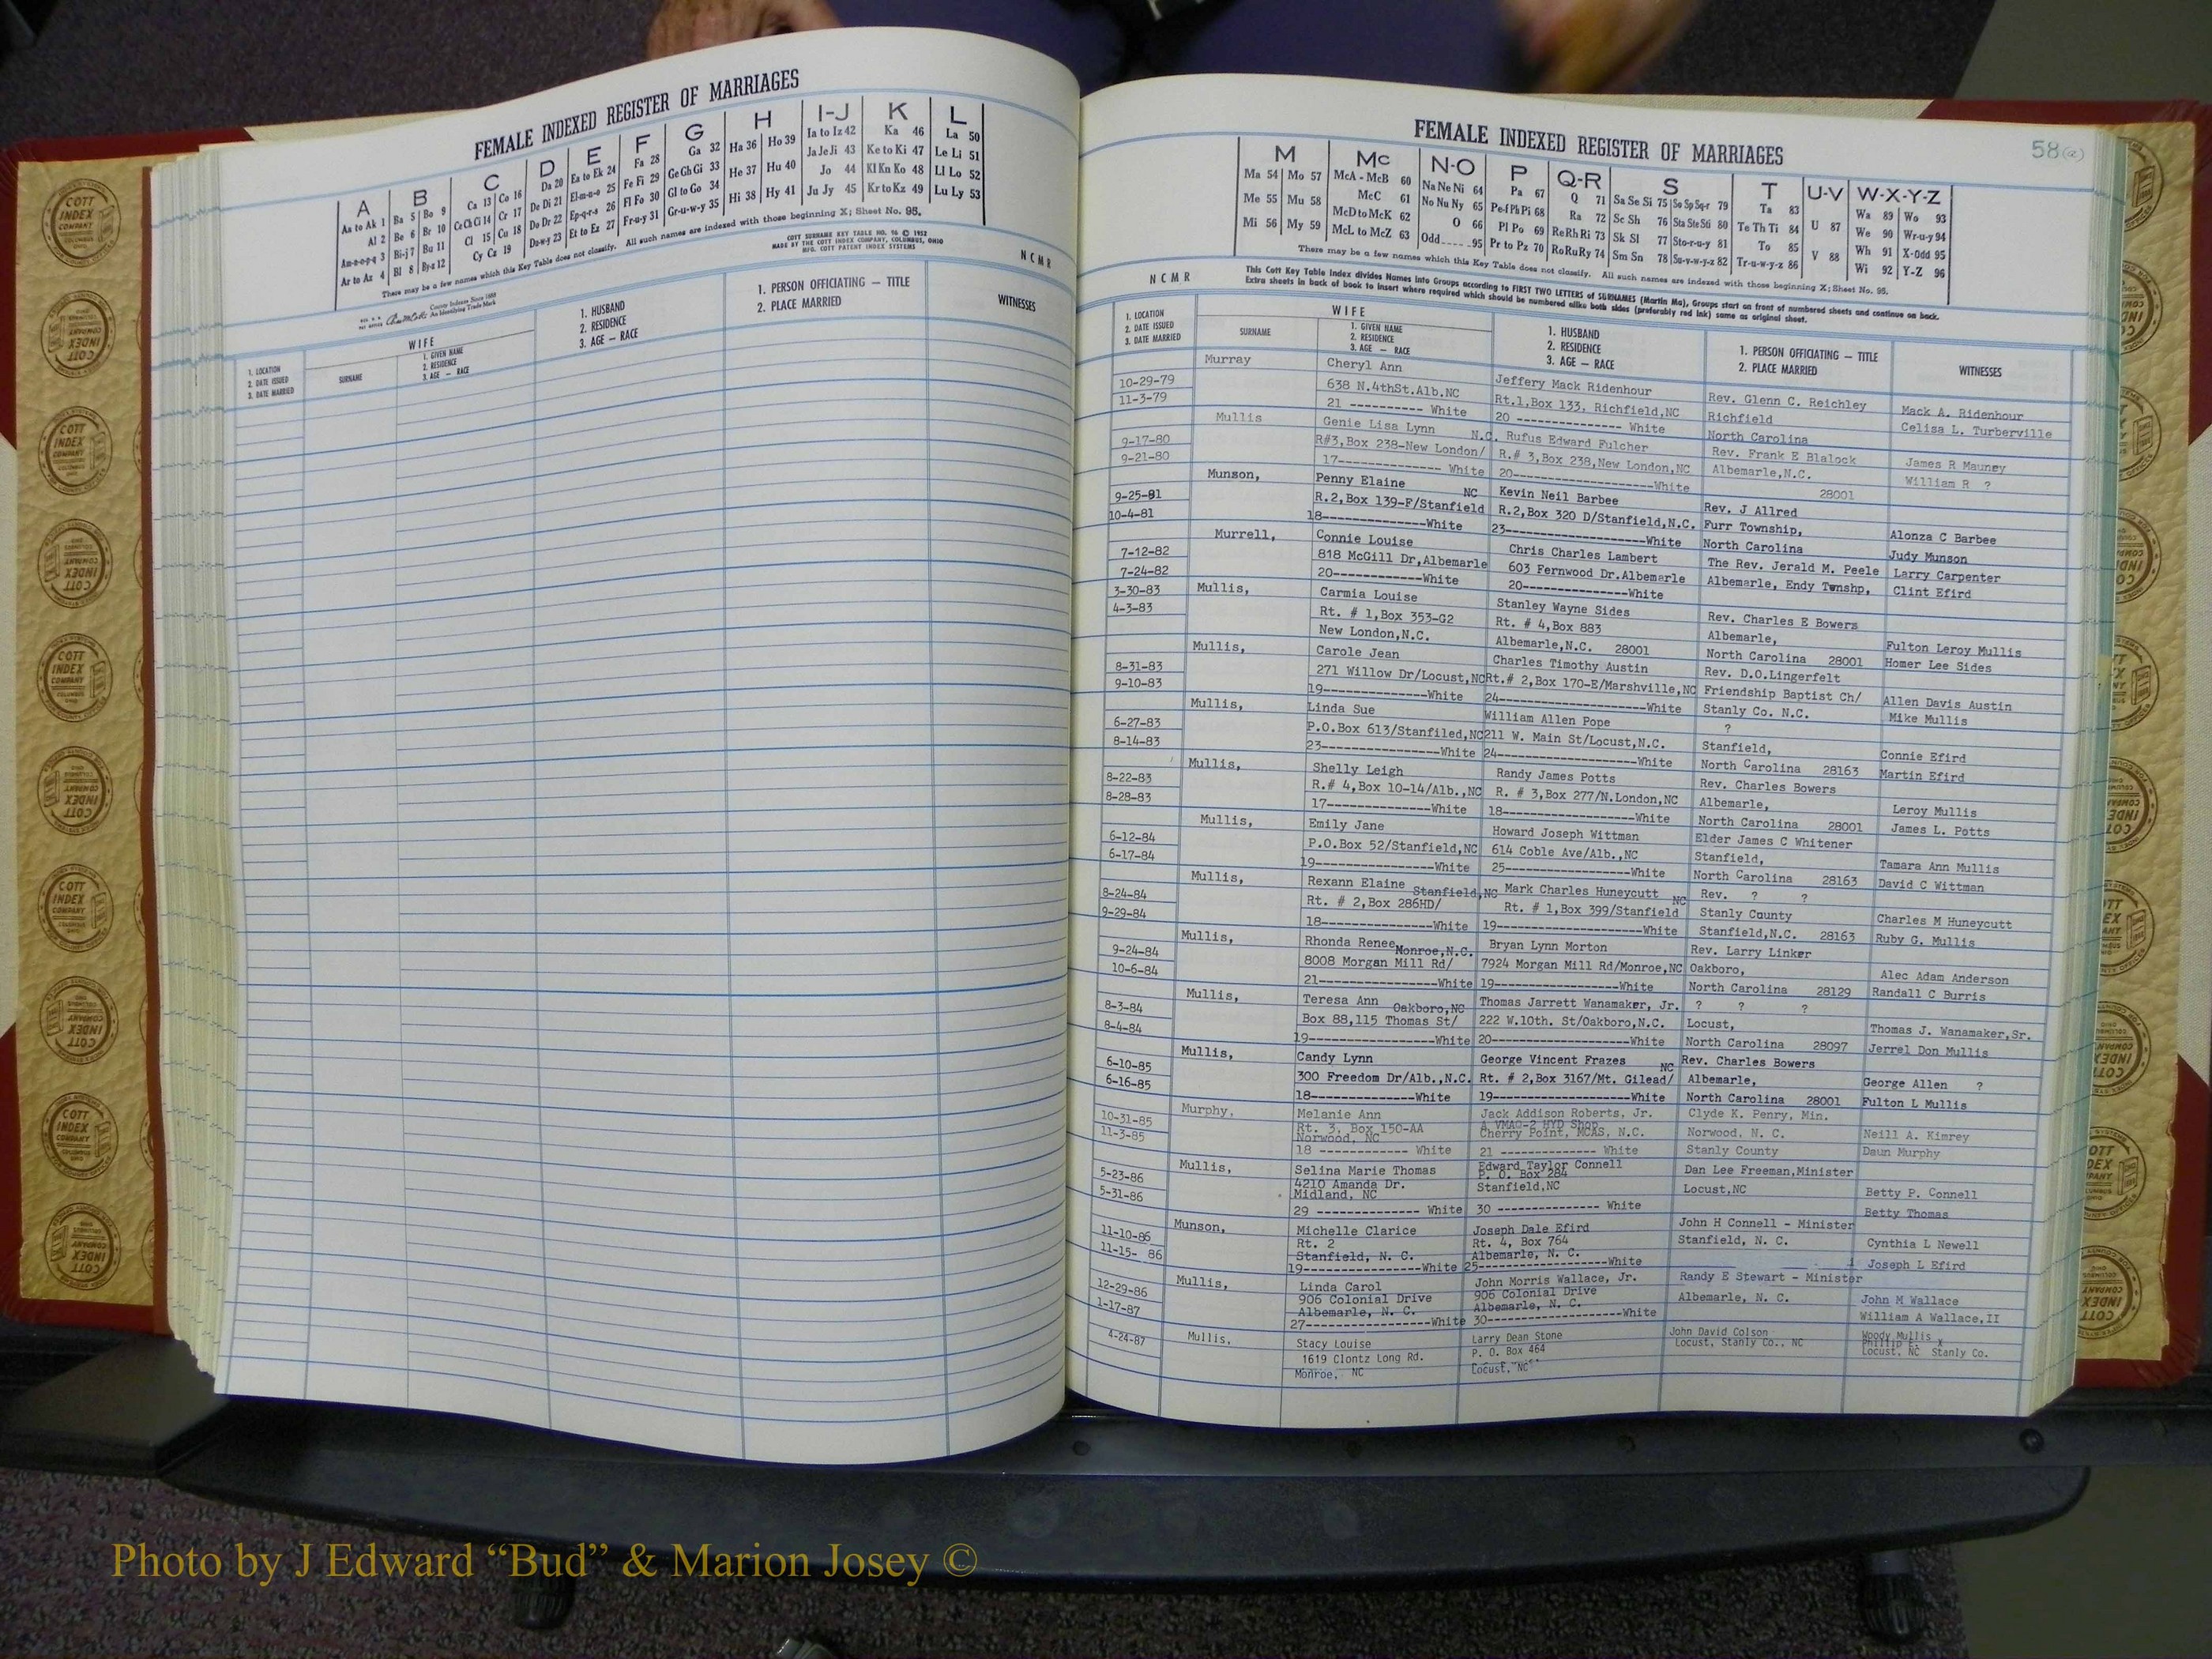 FEMALE INDEXED REGISTER OF MARRIAGES
A B C D E F G H I-J K L
Aa to Ak 1 Ba 5 Bo 9 Ca 13 Co 16 Da 20 Ea to Ek 24 Fa 28 Ga 32 Ha 36 Ho 39 Ia to Iz 42 Ka 46 La 50
Al 2 Be 6 Br 10 Ce Ch Ci 14 Cr 17 De Di 21 El-m-n-o 25 Fe Fi 29 Ge Gh Gi 33 He 37 Hu 40 Ja Je Ji 43 Ke to Ki 47 Le Li 51
Am-n-o-p-q 3 Bi-j 7 Bu 11 Cl 15 Cu 18 Do Dr 22 Ep-q-r-s 26 Fl Fo 30 Gl to Go 34 Hi 38 Hy 41 Jo 44 Kl Kn Ko 48 Ll Lo 52
Ar to Az 4 Bl 8 By-z 12 Cy Cz 19 Du-w-y 23 Et to Ez 27 Fr-u-y 31 Gr-u-w-y 35 Ju Jy 45 Kr to Kz 49 Lu Ly 53
There may be a few names which this Key Table does not classify. All such names are indexed with those beginning X; Sheet No. 95.
COTT SURNAME KEY TABLE NO. 96 © 1952
MADE BY THE COTT INDEX COMPANY, COLUMBUS, OHIO
MFG. COTT PATENT INDEX SYSTEMS
County Indexes Since 1888
An Identifying Trade Mark
N C M R
1. LOCATION
2. DATE ISSUED
3. DATE MARRIED
WIFE
SURNAME
1. GIVEN NAME
2. RESIDENCE
3. AGE — RACE
1. HUSBAND
2. RESIDENCE
3. AGE — RACE
1. PERSON OFFICIATING — TITLE
2. PLACE MARRIED
WITNESSES
FEMALE INDEXED REGISTER OF MARRIAGES
58(a)
M Mc N-O P Q-R S T U-V W-X-Y-Z
Ma 54 Mo 57 McA - McB 60 Na Ne Ni 64 Pa 67 Q 71 Sa Se Si 75 So Sp Sq-r 79 Ta 83 Wa 89 Wo 93
Me 55 Mu 58 McC 61 No Nu Ny 65 Pe-f Ph Pi 68 Ra 72 Sc Sh 76 Sta Ste Sti 80 Te Th Ti 84 U 87 We 90 Wr-u-y 94
Mi 56 My 59 McD to McK 62 O 66 Pl Po 69 Re Rh Ri 73 Sk Sl 77 Sto-r-u-y 81 To 85 Wh 91 X-Odd 95
McL to McZ 63 Odd 95 Pr to Pz 70 Ro Ru Ry 74 Sm Sn 78 Su-v-w-y-z 82 Tr-u-w-y-z 86 V 88 Wi 92 Y-Z 96
There may be a few names which this Key Table does not classify. All such names are indexed with those beginning X; Sheet No. 95.
This Cott Key Table Index divides Names into Groups according to FIRST TWO LETTERS of SURNAMES (Martin Ma), Groups start on front of numbered sheets and continue on back.
Extra sheets in back of book to insert where required which should be numbered alike both sides (preferably red ink) same as original sheet.
N C M R
1. LOCATION
2. DATE ISSUED
3. DATE MARRIED
WIFE
SURNAME
1. GIVEN NAME
2. RESIDENCE
3. AGE — RACE
1. HUSBAND
2. RESIDENCE
3. AGE — RACE
1. PERSON OFFICIATING — TITLE
2. PLACE MARRIED
WITNESSES
Murray Cheryl Ann Jeffery Mack Ridenhour Rev. Glenn C. Reichley Mack A. Ridenhour
10-29-79 638 N.4thSt.Alb.NC Rt.1,Box 133, Richfield,NC Richfield Celisa L. Turberville
11-3-79 21 ---------- White 20 --------------- White North Carolina
Mullis Genie Lisa Lynn Rufus Edward Fulcher Rev. Frank E Blalock James R Mauney
9-17-80 R#3,Box 238-New London/ N.C. R.# 3,Box 238,New London,NC Albemarle,N.C. William R ?
9-21-80 17-------------- White 20--------------------White 28001
Munson, Penny Elaine Kevin Neil Barbee Rev. J Allred
9-25-81 R.2,Box 139-F/Stanfield NC R.2,Box 320 D/Stanfield,N.C. Furr Township, Alonza C Barbee
10-4-81 18--------------White 23--------------------White North Carolina Judy Munson
Murrell, Connie Louise Chris Charles Lambert The Rev. Jerald M. Peele Larry Carpenter
7-12-82 818 McGill Dr,Albemarle 603 Fernwood Dr.Albemarle Albemarle, Endy Twnshp, Clint Efird
7-24-82 20------------White 20---------------White
3-30-83 Mullis, Carmia Louise Stanley Wayne Sides Rev. Charles E Bowers
4-3-83 Rt. # 1,Box 353-G2 Rt. # 4,Box 883 Albemarle, Fulton Leroy Mullis
New London,N.C. Albemarle,N.C. 28001 North Carolina 28001 Homer Lee Sides
Mullis, Carole Jean Charles Timothy Austin Rev. D.O.Lingerfelt
8-31-83 271 Willow Dr/Locust,NC Rt.# 2,Box 170-E/Marshville,NC Friendship Baptist Ch/ Allen Davis Austin
9-10-83 19--------------White 24---------------------White Stanly Co. N.C. Mike Mullis
Mullis, Linda Sue William Allen Pope ?
6-27-83 P.O.Box 613/Stanfiled,NC 211 W. Main St/Locust,N.C. Stanfield, Connie Efird
8-14-83 23---------------White 24------------------White North Carolina 28163 Martin Efird
Mullis, Shelly Leigh Randy James Potts Rev. Charles Bowers
8-22-83 R.# 4,Box 10-14/Alb.,NC R. # 3,Box 277/N.London,NC Albemarle, Leroy Mullis
8-28-83 17--------------White 18-------------------White North Carolina 28001 James L. Potts
Mullis, Emily Jane Howard Joseph Wittman Elder James C Whitener
6-12-84 P.O.Box 52/Stanfield,NC 614 Coble Ave/Alb.,NC Stanfield, Tamara Ann Mullis
6-17-84 19---------------White 25------------------White North Carolina 28163 David C Wittman
Mullis, Rexann Elaine Stanfield,NC Mark Charles Huneycutt NC Rev. ? ?
8-24-84 Rt. # 2,Box 286HD/ Rt. # 1,Box 399/Stanfield Stanly County Charles M Huneycutt
9-29-84 18---------------White 19--------------------White Stanfield,N.C. 28163 Ruby G. Mullis
Mullis, Rhonda Renee Monroe,N.C. Bryan Lynn Morton Rev. Larry Linker
9-24-84 8008 Morgan Mill Rd/ 7924 Morgan Mill Rd/Monroe,NC Oakboro, Alec Adam Anderson
10-6-84 21---------------White 19-------------------White North Carolina 28129 Randall C Burris
Mullis, Teresa Ann Oakboro,NC Thomas Jarrett Wanamaker, Jr. ? ? ?
8-3-84 Box 88,115 Thomas St/ 222 W.10th. St/Oakboro,N.C. Locust, Thomas J. Wanamaker,Sr.
8-4-84 19----------------White 20---------------------White North Carolina 28097 Jerrel Don Mullis
Mullis, Candy Lynn George Vincent Frazes NC Rev. Charles Bowers
6-10-85 300 Freedom Dr/Alb.,N.C. Rt. # 2,Box 3167/Mt. Gilead/ Albemarle, George Allen ?
6-16-85 18--------------White 19---------------------White North Carolina 28001 Fulton L Mullis
Murphy, Melanie Ann Jack Addison Roberts, Jr. Clyde K. Penry, Min.
10-31-85 Rt. 3, Box 150-AA A VMAQ-2 HYD Shop Norwood, N. C. Neill A. Kimrey
11-3-85 Norwood, NC Cherry Point, MCAS, N.C. Stanly County Daun Murphy
18 ------------ White 21 ------------- White
Mullis, Selina Marie Thomas Edward Taylor Connell Dan Lee Freeman,Minister
5-23-86 4210 Amanda Dr. P. O. Box 284 Locust,NC Betty P. Connell
5-31-86 Midland, NC Stanfield,NC Betty Thomas
29 -------------- White 30 -------------- White
Munson, Michelle Clarice Joseph Dale Efird John H Connell - Minister
11-10-86 Rt. 2 Rt. 4, Box 764 Stanfield, N. C. Cynthia L Newell
11-15- 86 Stanfield, N. C. Albemarle, N. C. Joseph L Efird
19----------------White 25---------------------White
Mullis, Linda Carol John Morris Wallace, Jr. Randy E Stewart - Minister
12-29-86 906 Colonial Drive 906 Colonial Drive Albemarle, N. C. John M Wallace
1-17-87 Albemarle, N. C. Albemarle, N. C. William A Wallace,II
27-----------------White 30-------------------White
4-24-87 Mullis, Stacy Louise Larry Dean Stone John David Colson Woody Mullis
1619 Clontz Long Rd. P. O. Box 464 Locust, Stanly Co., NC Phillip
Monroe, NC Locust, NC Locust, NC Stanly Co.
COTT
INDEX
COMPANY
Photo by J Edward “Bud” & Marion Josey ©